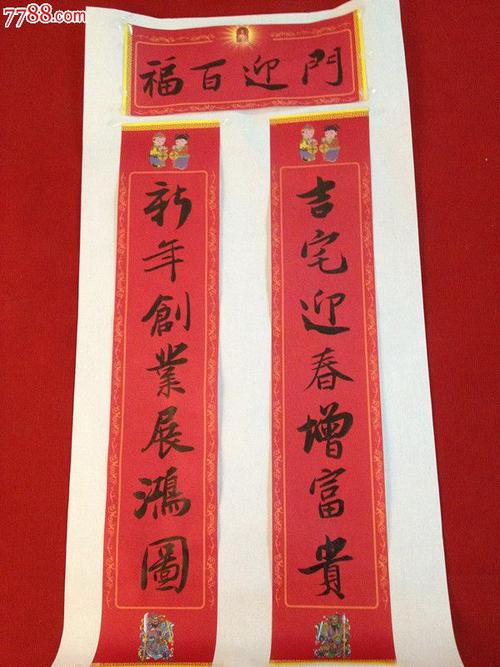 7788.com
門迎百福
吉宅迎春增富貴
新年創業展鴻圖